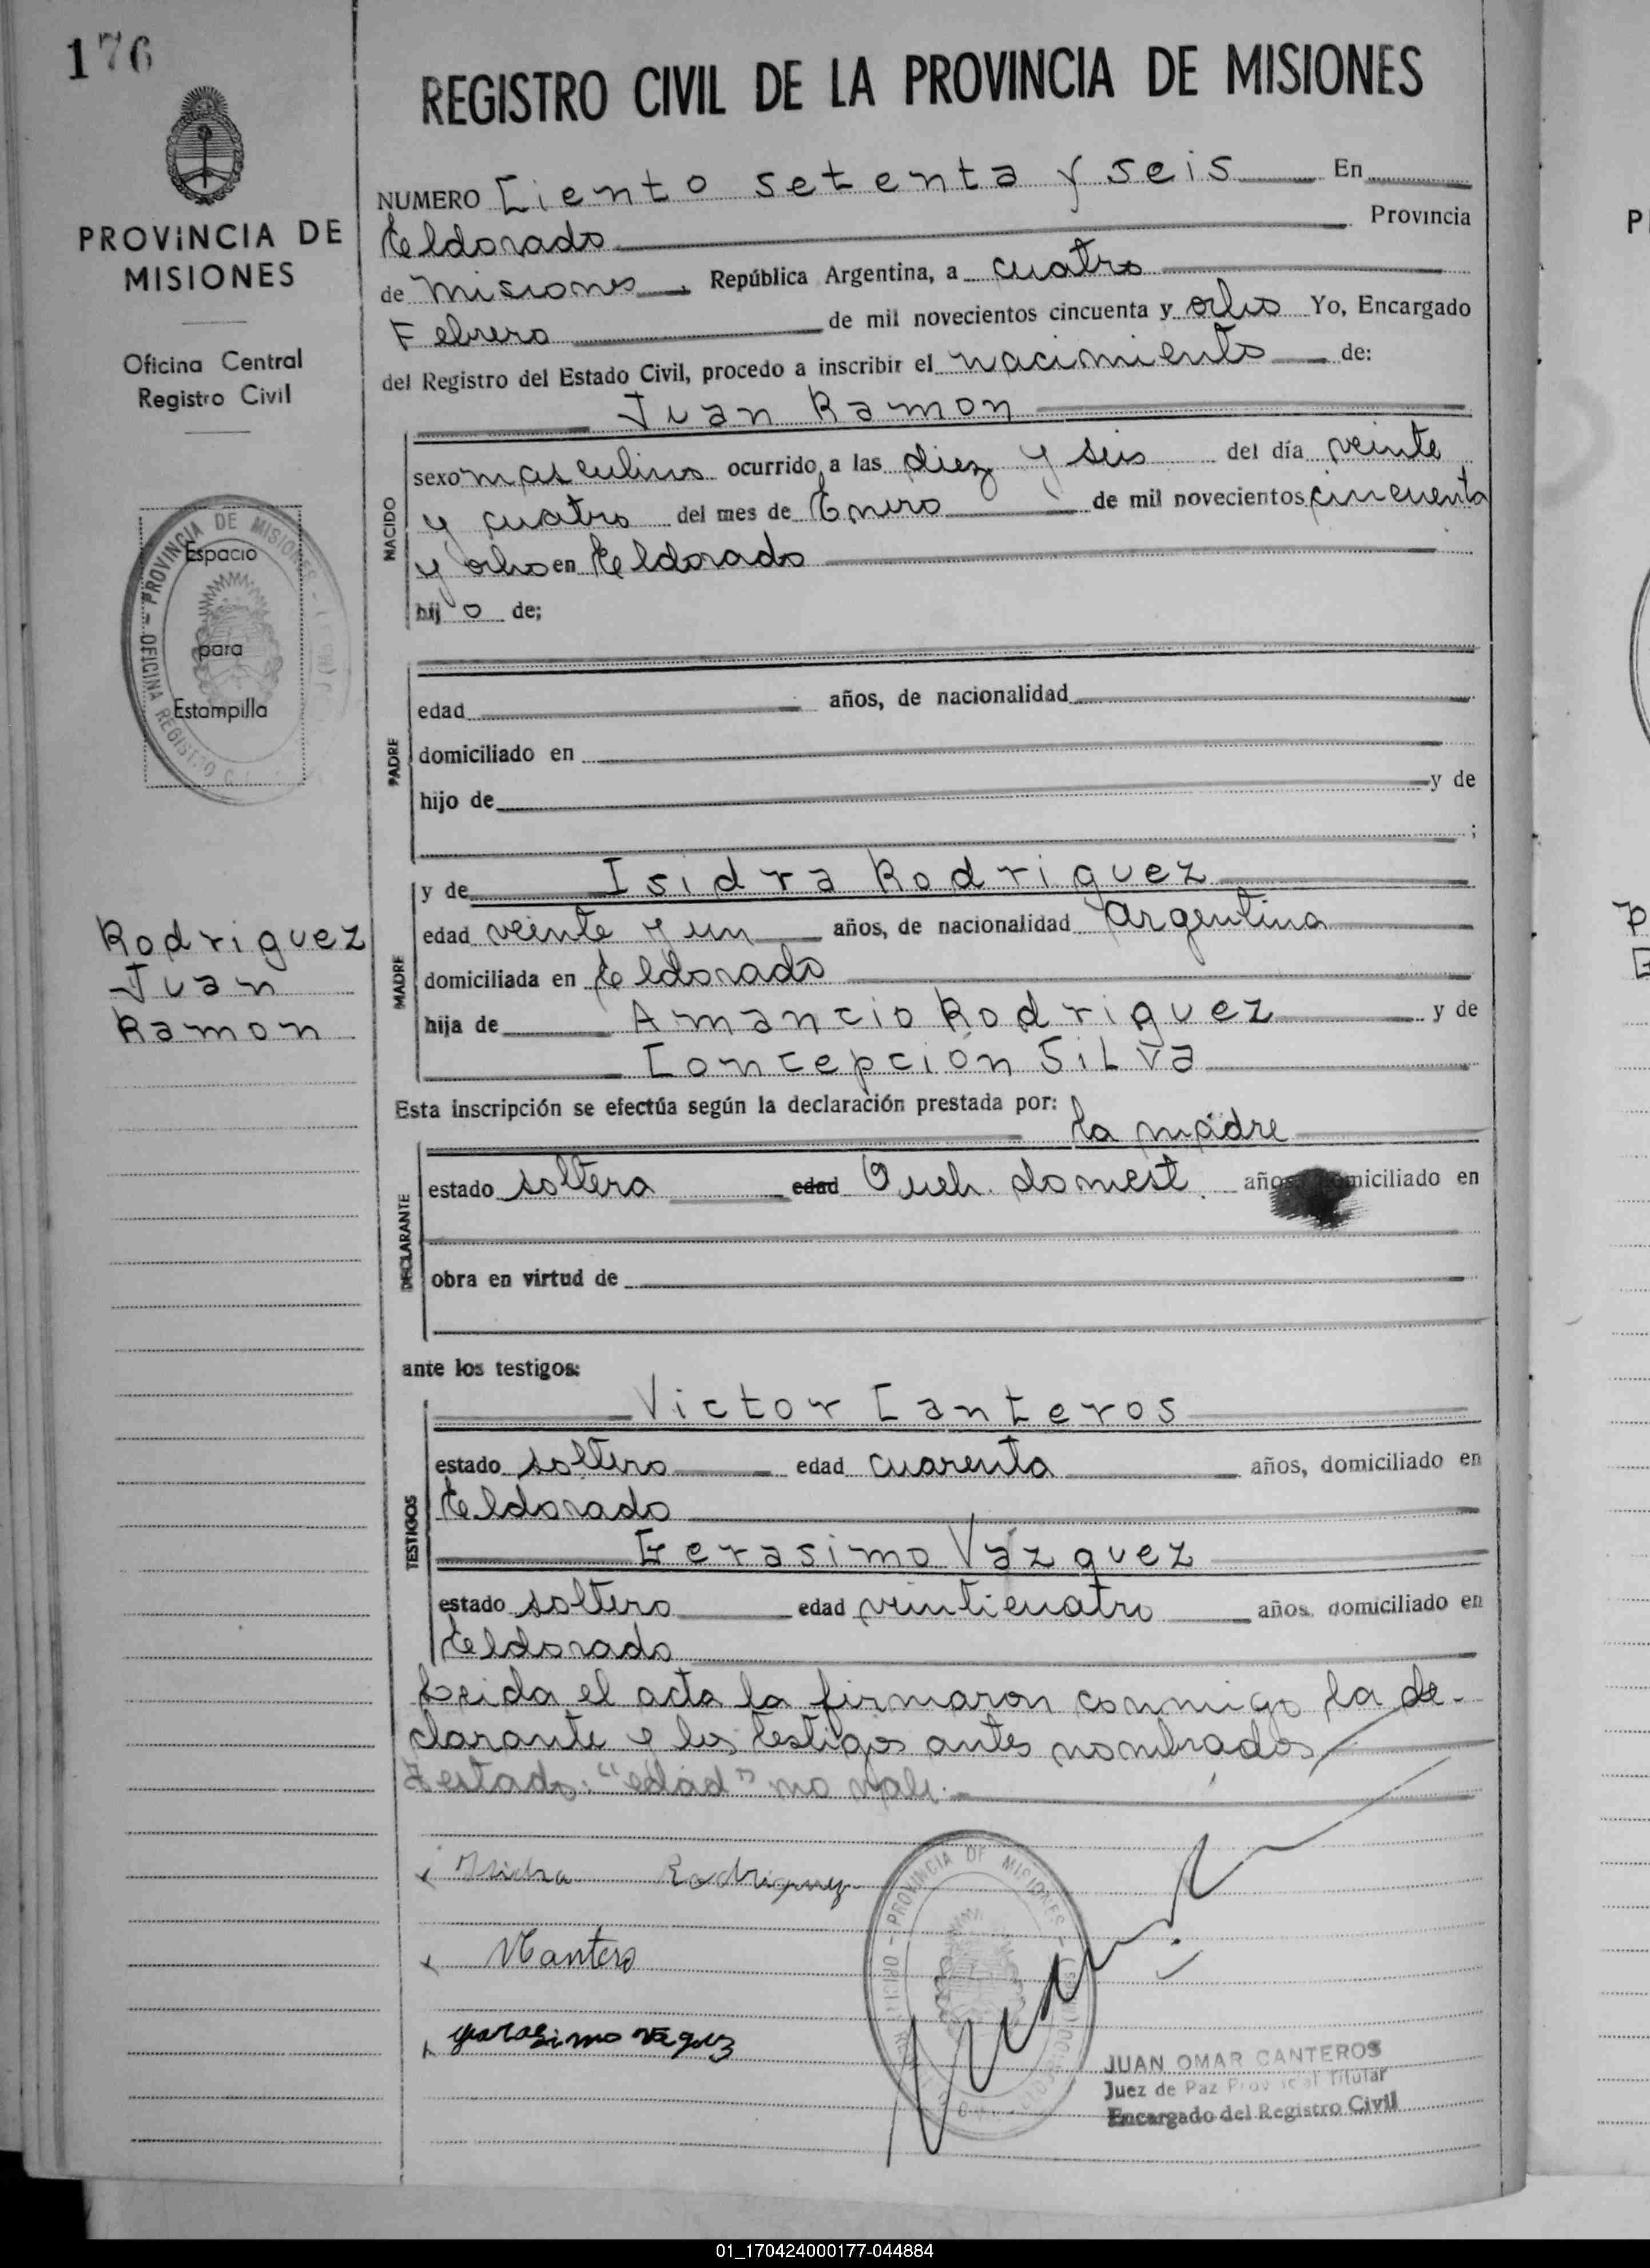 176
REGISTRO CIVIL DE LA PROVINCIA DE MISIONES
PROVINCIA DE
MISIONES
Oficina Central
Registro Civil
NUMERO Ciento setenta y seis En
Eldorado Provincia
de Misiones, República Argentina, a cuatro
Febrero de mil novecientos cincuenta y ocho Yo, Encargado
del Registro del Estado Civil, procedo a inscribir el nacimiento de:
Juan Ramon
NACIDO
sexo masculino ocurrido a las diez y seis del día veinte
y cuatro del mes de Enero de mil novecientos cincuenta
y ocho en Eldorado
hij o de;
OFICINA REGISTRO - PROVINCIA DE MISIONES
Espacio
para
Estampilla
PADRE
edad años, de nacionalidad
domiciliado en
hijo de y de
;
Rodriguez
Juan
Ramon
MADRE
y de Isidra Rodriguez
edad veinte y un años, de nacionalidad Argentina
domiciliada en Eldorado
hija de Amancio Rodriguez y de
Concepción Silva
Esta inscripción se efectúa según la declaración prestada por:
la madre
DECLARANTE
estado soltera edad Queh. domest. años domiciliado en
obra en virtud de
ante los testigos:
TESTIGOS
Victor Canteros
estado soltero edad cuarenta años, domiciliado en
Eldorado
Gerasimo Vázquez
estado soltero edad veinticuatro años, domiciliado en
Eldorado
Leida el acta la firmaron conmigo la de-
clarante y los testigos antes nombrados
Testado: "edad" no vale.
Isidra Rodriguez
PROVINCIA DE MISIONES
JUAN OMAR CANTEROS
Juez de Paz Provincial Titular
Encargado del Registro Civil
01_170424000177-044884